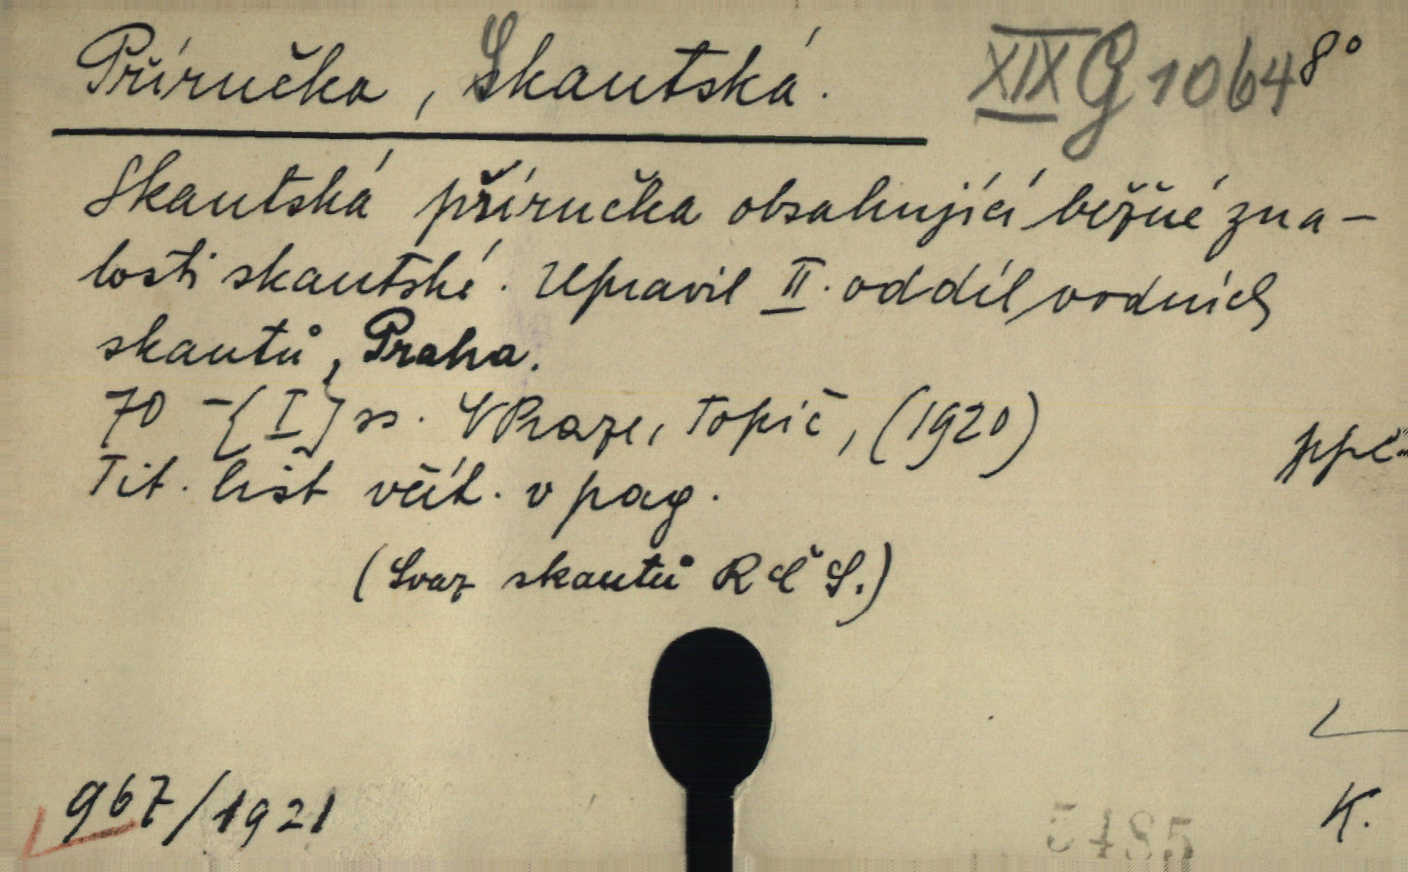 Příručka, Skautská. XIX G 1064 8°
Skautská příručka obsahující běžné zna-
losti skautské. Upravil II. oddíl vodních
skautů, Praha.
70 - {I} ss. V Praze, Topič, (1920)
Tit. list včít. v pag.
(Svaz skautů R Č S.)
967/1921
K.